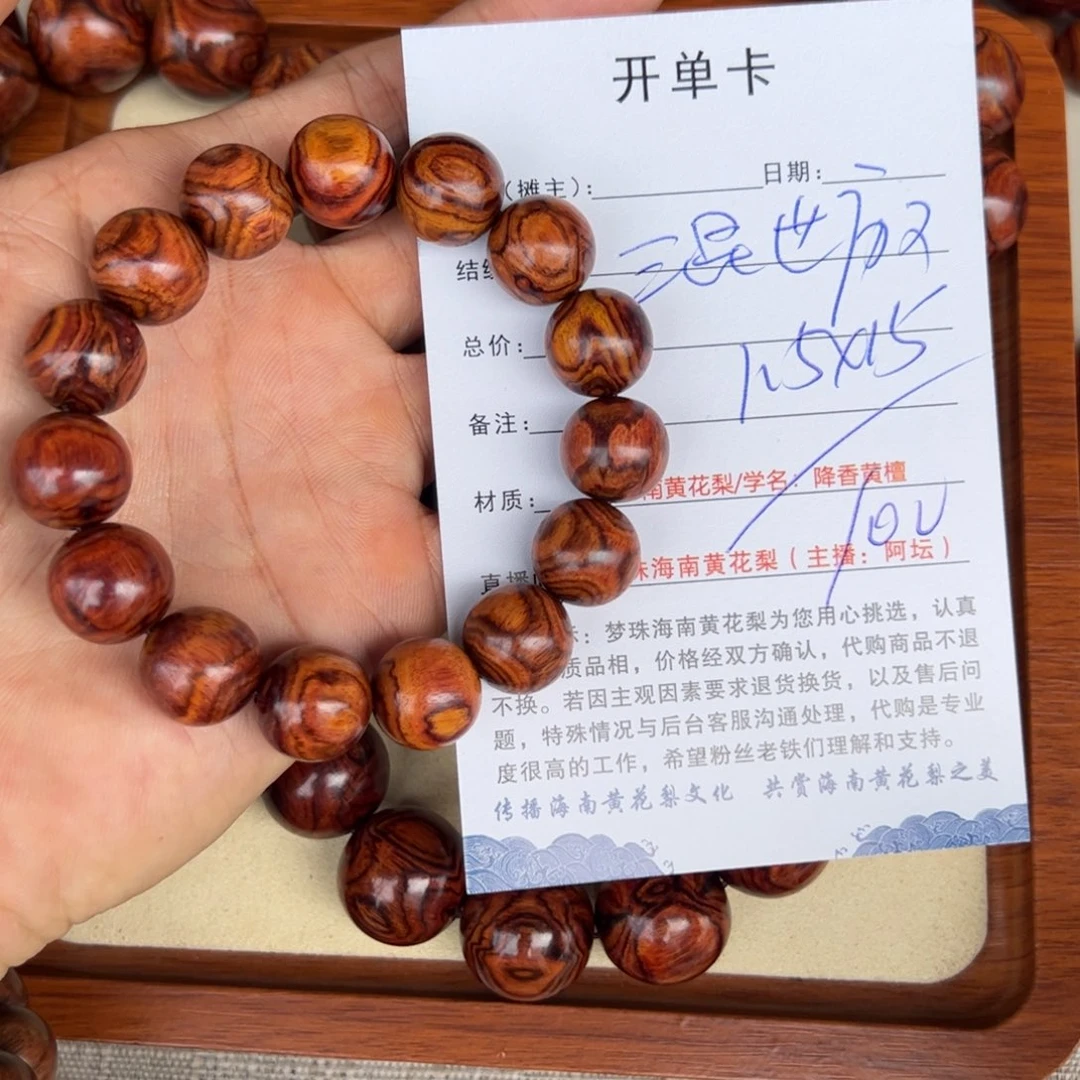 开单卡
（摊主）：
日期：
结
总价：
1.5×15
备注：
材质：
南黄花梨/学名：降香黄檀
珠海南黄花梨（主播：阿坛）
：梦珠海南黄花梨为您用心挑选，认真
质品相，价格经双方确认，代购商品不退
不换。若因主观因素要求退货换货，以及售后问
题，特殊情况与后台客服沟通处理，代购是专业
度很高的工作，希望粉丝老铁们理解和支持。
传播海南黄花梨文化 共赏海南黄花梨之美